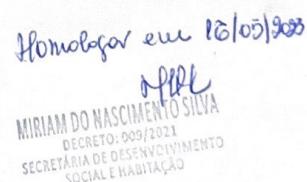 Homologar em 16/05/2023
MIRIAM DO NASCIMENTO SILVA
DECRETO: 009/2021
SECRETÁRIA DE DESENVOLVIMENTO
SOCIAL E HABITAÇÃO